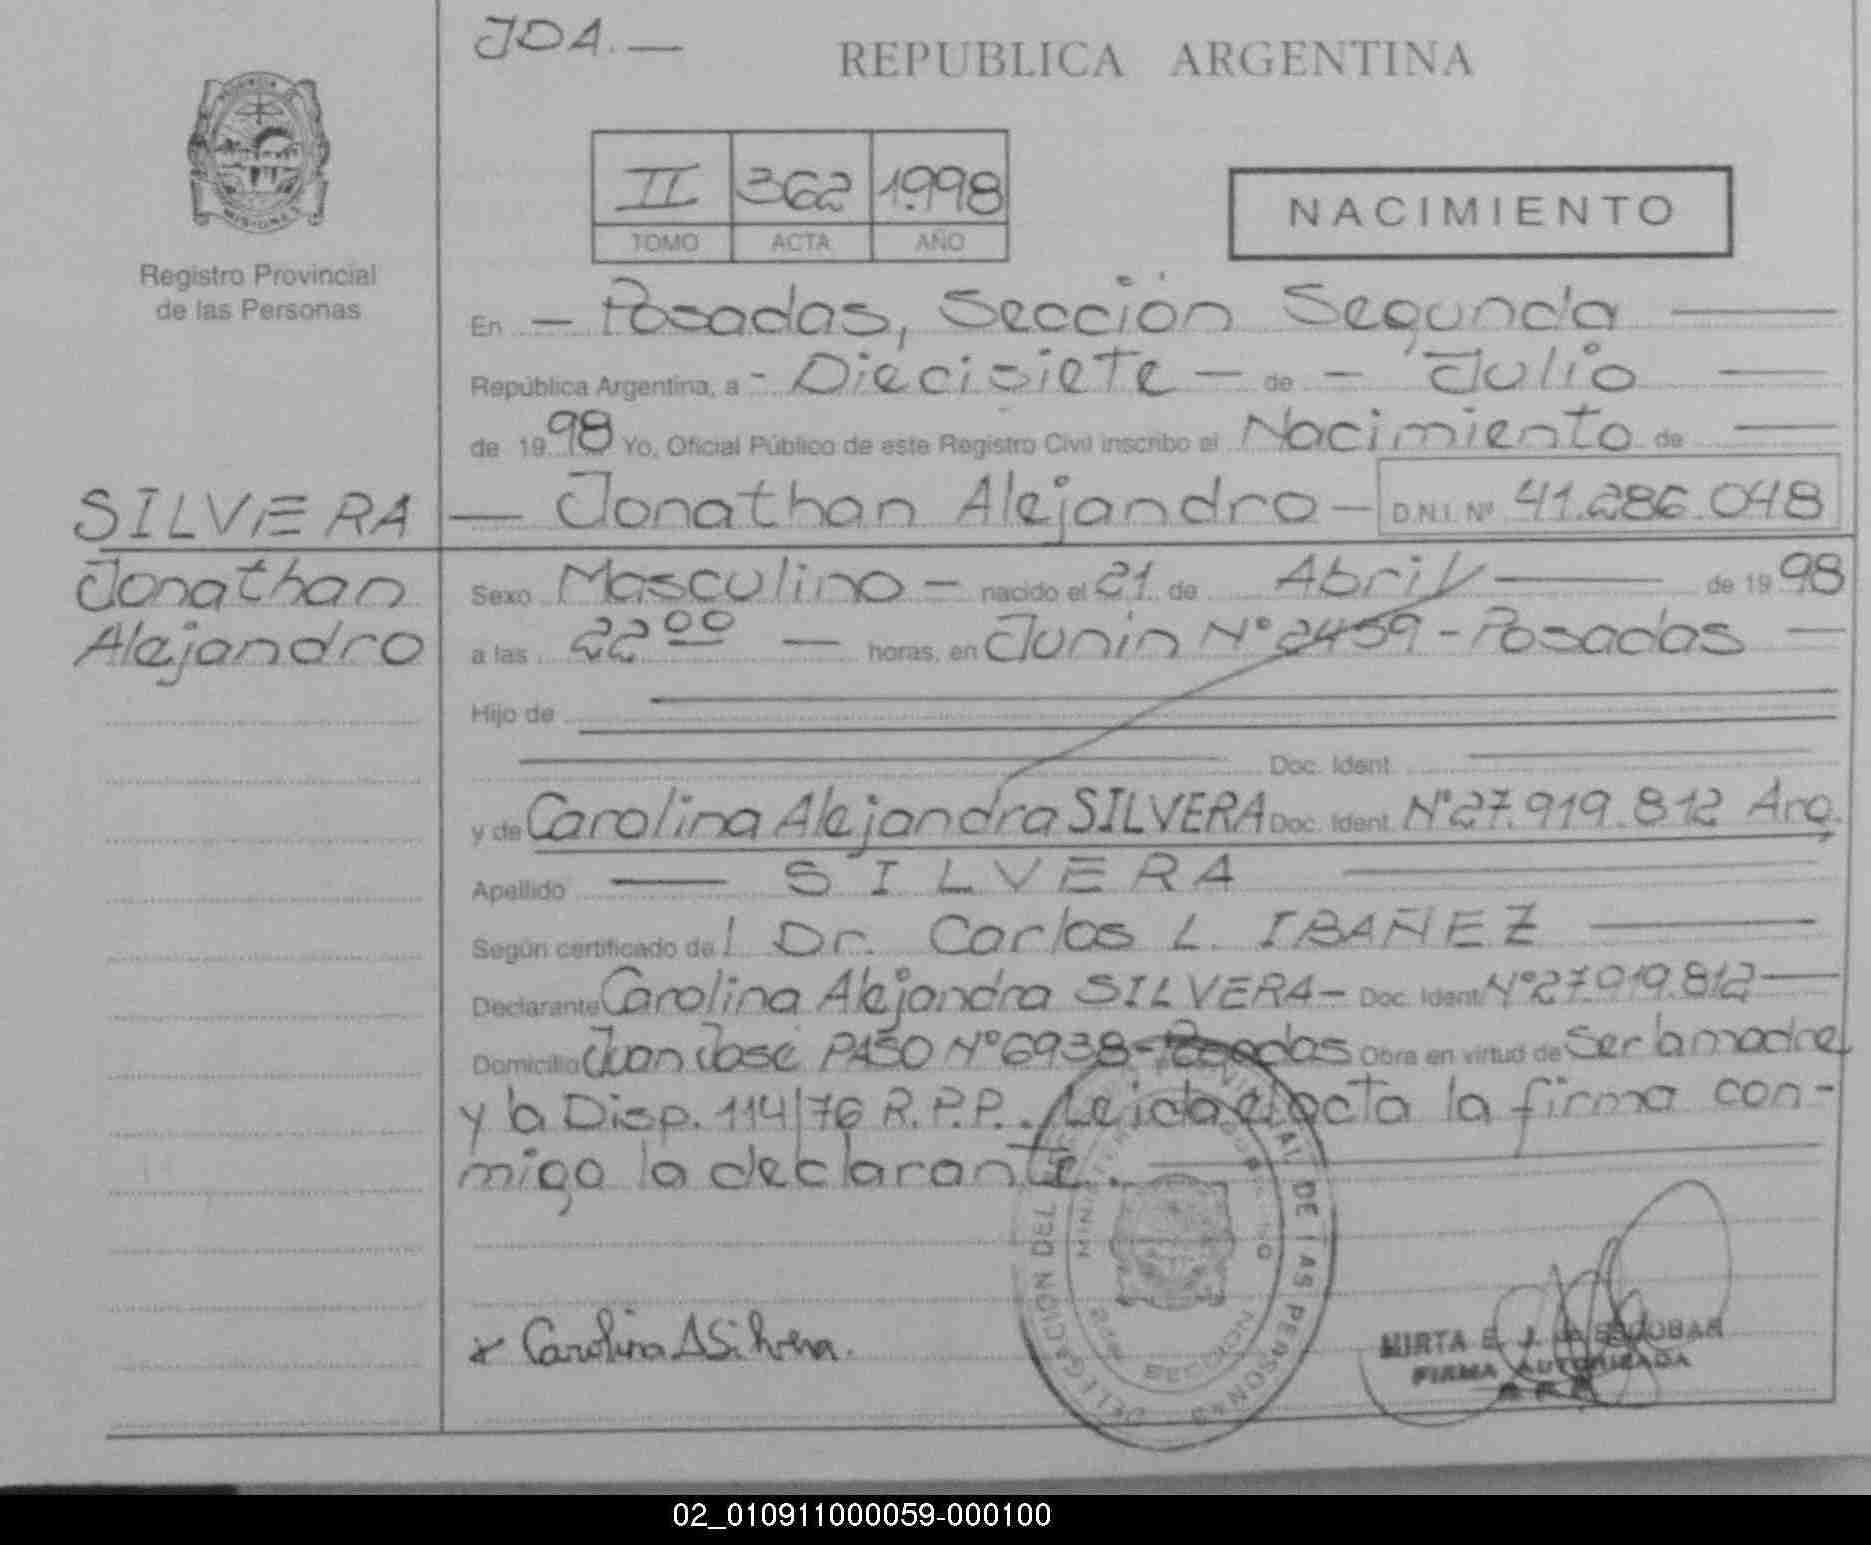 JDA.—
REPUBLICA ARGENTINA
PROVINCIA
MISIONES
Registro Provincial
de las Personas
II 362 1998
TOMO ACTA AÑO
NACIMIENTO
En — Posadas, Sección Segunda —
República Argentina, a - Diecisiete — de — Julio —
de 1998 Yo, Oficial Público de este Registro Civil inscribo el Nacimiento de —
SILVERA — Jonathan Alejandro — D.N.I. Nº 41.286.048
Jonathan
Alejandro
Sexo Masculino — nacido el 21 de Abril — de 1998
a las 22 00 — horas, en Junin Nº 2459 - Posadas —
Hijo de
Doc. Ident.
y de Carolina Alejandra SILVERA Doc. Ident. Nº 27.919.812 Arg.
Apellido — SILVERA —
Según certificado del Dr. Carlos L. IBAÑEZ —
Declarante Carolina Alejandra SILVERA — Doc. Ident. Nº 27.919.812 —
Domicilio Juan José PASO Nº 6938 - Posadas Obra en virtud de ser la madre
y la Disp. 114/76 R.P.P.. Leida el acta la firma con-
migo la declarante. —
DELEGACION DEL PROVINCIAL DE LAS PERSONAS
SECCION
x Carolina A Silvera.
MIRTA E. J. ESCOBAR
FIRMA AUTORIZADA
02_010911000059-000100